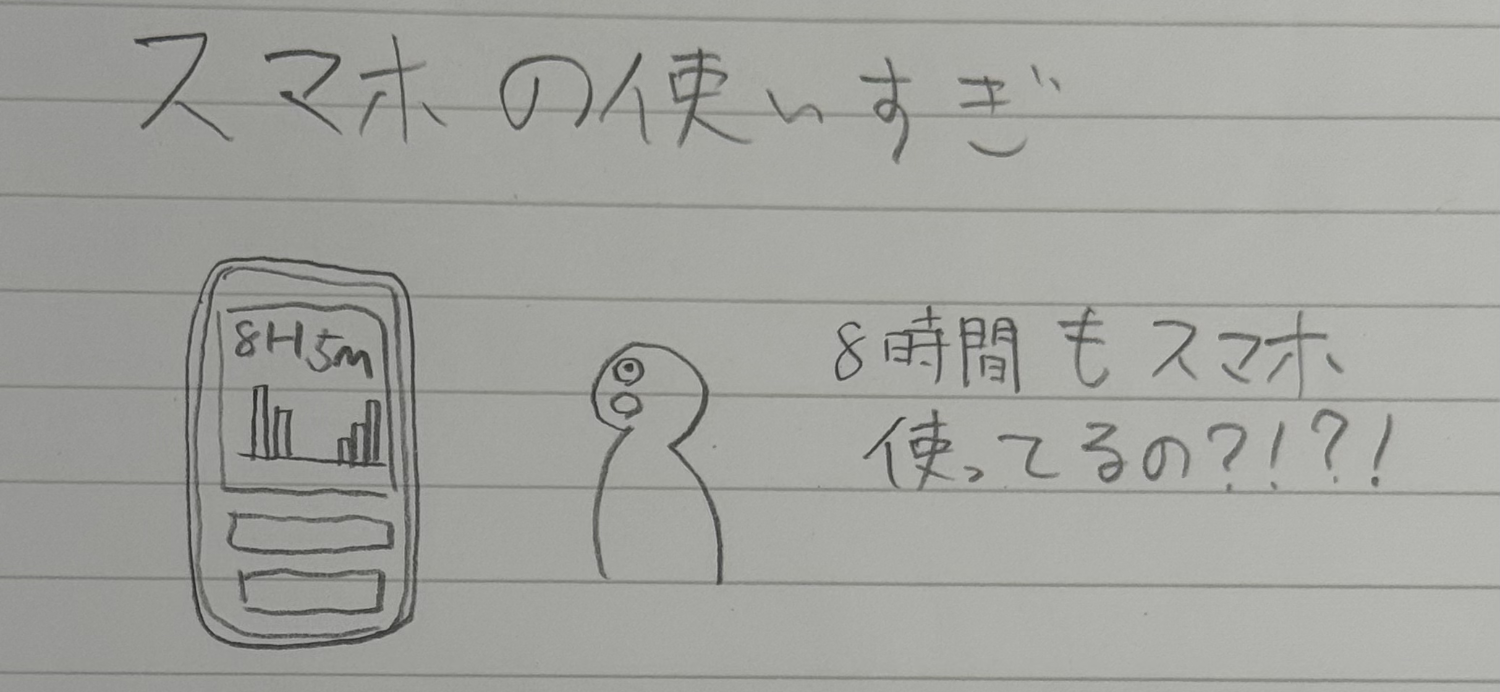 スマホの使いすぎ
8H5m
8時間もスマホ
使ってるの?!?!